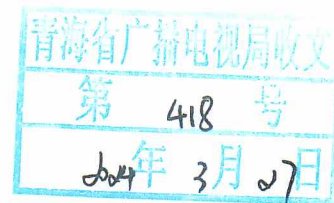 青海省广播电视局收文
第 418 号
2024年 3月 27日